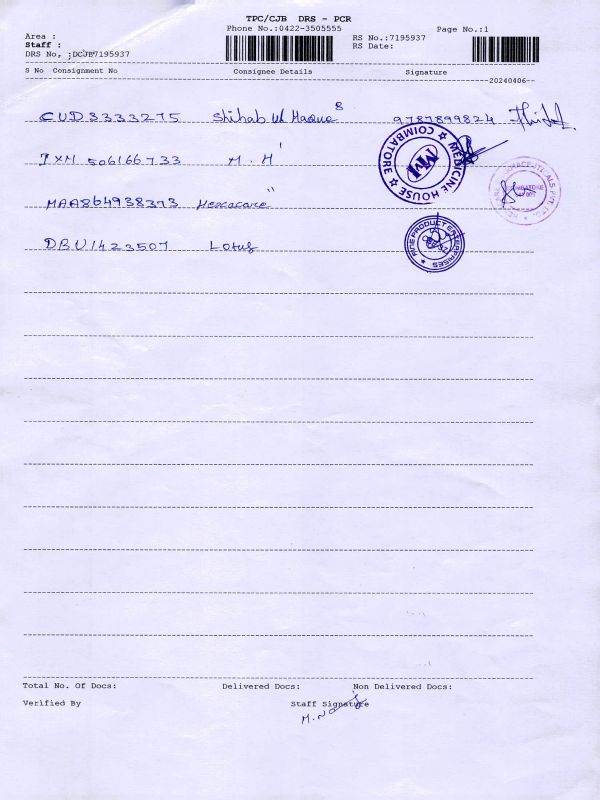 TPC/CJB DRS - PCR
Phone No.:0422-3505555
Page No.:1
Area :
Staff :
DRS No, :DCJB7195937
RS No.:7195937
RS Date:
S No Consignment No Consignee Details Signature
20240406
CUD3333275 Shihab Ul Haque 8 9787899824
IXM 506166733 M. H
MAA864938373 "
DBU1423507 Lotus
MEDICINE HOUSE
COIMBATORE
PRODUCT ENTERPRISES
Total No. Of Docs: Delivered Docs: Non Delivered Docs:
Verified By Staff Signature